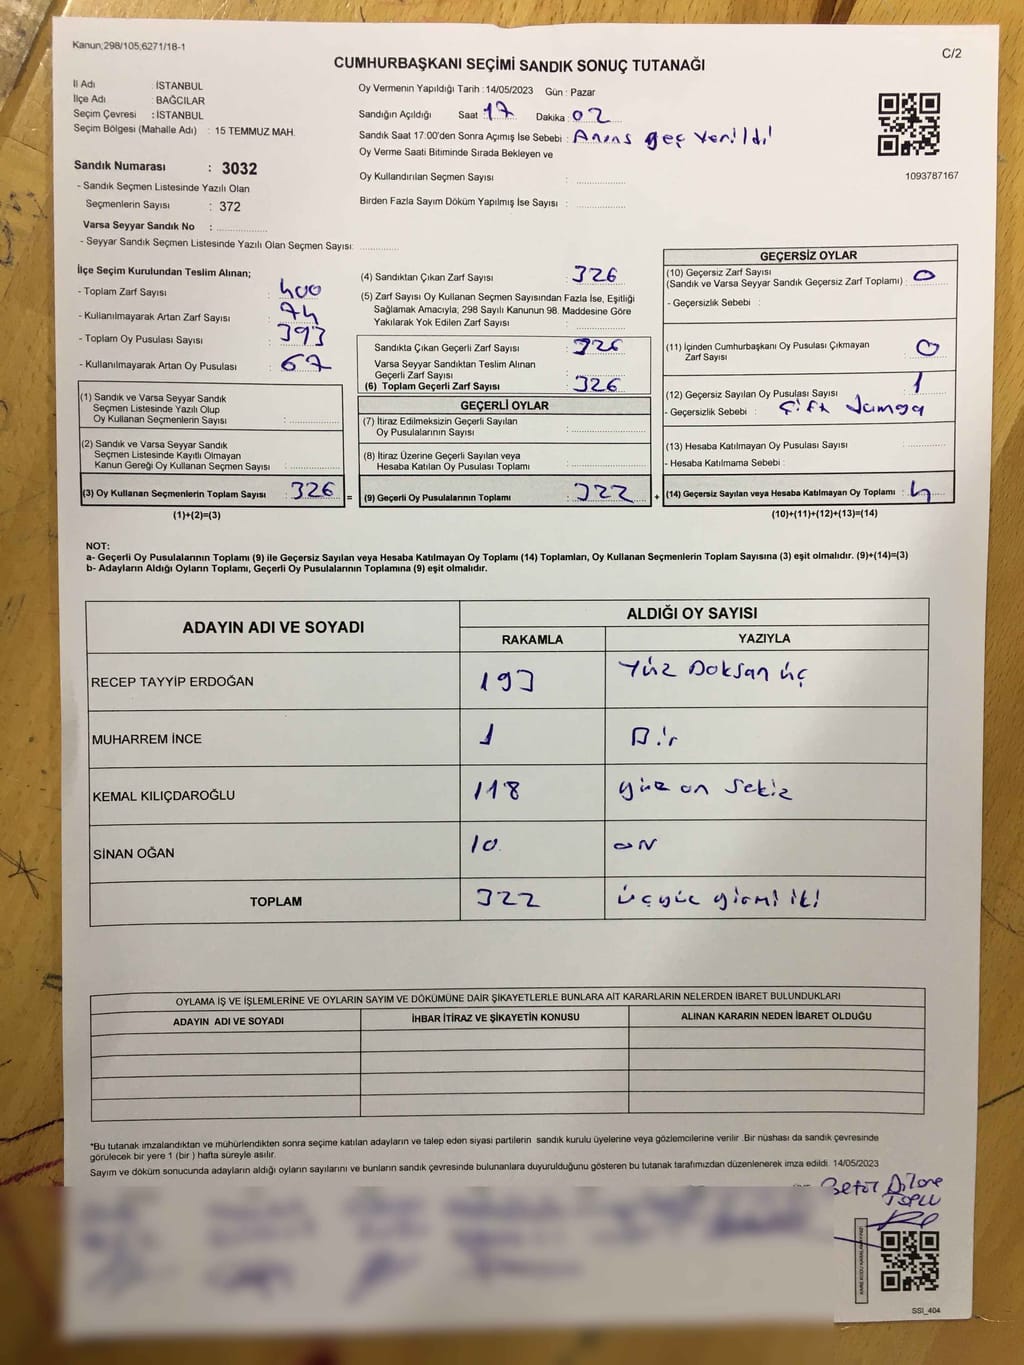 Kanun;298/105;6271/18-1
C/2
CUMHURBAŞKANI SEÇİMİ SANDIK SONUÇ TUTANAĞI
İl Adı : İSTANBUL
İlçe Adı : BAĞCILAR
Seçim Çevresi : İSTANBUL
Seçim Bölgesi (Mahalle Adı) : 15 TEMMUZ MAH.
Sandık Numarası : 3032
- Sandık Seçmen Listesinde Yazılı Olan
Seçmenlerin Sayısı : 372
Varsa Seyyar Sandık No :
- Seyyar Sandık Seçmen Listesinde Yazılı Olan Seçmen Sayısı:
Oy Vermenin Yapıldığı Tarih : 14/05/2023 Gün : Pazar
Sandığın Açıldığı Saat 17 Dakika : 02
Sandık Saat 17:00'den Sonra Açımış İse Sebebi : Anons geç verildi
Oy Verme Saati Bitiminde Sırada Bekleyen ve
Oy Kullandırılan Seçmen Sayısı :
Birden Fazla Sayım Döküm Yapılmış İse Sayısı :
1093787167
İlçe Seçim Kurulundan Teslim Alınan;
- Toplam Zarf Sayısı : 400
- Kullanılmayarak Artan Zarf Sayısı : 74
- Toplam Oy Pusulası Sayısı : 393
- Kullanılmayarak Artan Oy Pusulası : 67
(1) Sandık ve Varsa Seyyar Sandık
Seçmen Listesinde Yazılı Olup
Oy Kullanan Seçmenlerin Sayısı :
(2) Sandık ve Varsa Seyyar Sandık
Seçmen Listesinde Kayıtlı Olmayan
Kanun Gereği Oy Kullanan Seçmen Sayısı :
(3) Oy Kullanan Seçmenlerin Toplam Sayısı : 326 =
(1)+(2)=(3)
(4) Sandıktan Çıkan Zarf Sayısı : 326
(5) Zarf Sayısı Oy Kullanan Seçmen Sayısından Fazla İse, Eşitliği
Sağlamak Amacıyla; 298 Sayılı Kanunun 98. Maddesine Göre
Yakılarak Yok Edilen Zarf Sayısı :
Sandıkta Çıkan Geçerli Zarf Sayısı : 326
Varsa Seyyar Sandıktan Teslim Alınan
Geçerli Zarf Sayısı :
(6) Toplam Geçerli Zarf Sayısı : 326
GEÇERLİ OYLAR
(7) İtiraz Edilmeksizin Geçerli Sayılan
Oy Pusulalarının Sayısı :
(8) İtiraz Üzerine Geçerli Sayılan veya
Hesaba Katılan Oy Pusulası Toplamı :
(9) Geçerli Oy Pusulalarının Toplamı : 322 +
GEÇERSİZ OYLAR
(10) Geçersiz Zarf Sayısı : 0
(Sandık ve Varsa Seyyar Sandık Geçersiz Zarf Toplamı)
- Geçersizlik Sebebi :
(11) İçinden Cumhurbaşkanı Oy Pusulası Çıkmayan
Zarf Sayısı : 0
(12) Geçersiz Sayılan Oy Pusulası Sayısı : 1
- Geçersizlik Sebebi : Çift Damga
(13) Hesaba Katılmayan Oy Pusulası Sayısı :
- Hesaba Katılmama Sebebi :
(14) Geçersiz Sayılan veya Hesaba Katılmayan Oy Toplamı : 4
(10)+(11)+(12)+(13)=(14)
NOT:
a- Geçerli Oy Pusulalarının Toplamı (9) ile Geçersiz Sayılan veya Hesaba Katılmayan Oy Toplamı (14) Toplamları, Oy Kullanan Seçmenlerin Toplam Sayısına (3) eşit olmalıdır. (9)+(14)=(3)
b- Adayların Aldığı Oyların Toplamı, Geçerli Oy Pusulalarının Toplamına (9) eşit olmalıdır.
ADAYIN ADI VE SOYADI ALDIĞI OY SAYISI
RAKAMLA YAZIYLA
RECEP TAYYİP ERDOĞAN 193 Yüz Doksan üç
MUHARREM İNCE 1 Bir
KEMAL KILIÇDAROĞLU 118 yüz on sekiz
SİNAN OĞAN 10 oN
TOPLAM 322 üçyüz yirmi iki
OYLAMA İŞ VE İŞLEMLERİNE VE OYLARIN SAYIM VE DÖKÜMÜNE DAİR ŞİKAYETLERLE BUNLARA AİT KARARLARIN NELERDEN İBARET BULUNDUKLARI
ADAYIN ADI VE SOYADI İHBAR İTİRAZ VE ŞİKAYETİN KONUSU ALINAN KARARIN NEDEN İBARET OLDUĞU
*Bu tutanak imzalandıktan ve mühürlendikten sonra seçime katılan adayların ve talep eden siyasi partilerin sandık kurulu üyelerine veya gözlemcilerine verilir .Bir nüshası da sandık çevresinde
görülecek bir yere 1 (bir ) hafta süreyle asılır.
Sayım ve döküm sonucunda adayların aldığı oyların sayılarını ve bunların sandık çevresinde bulunanlara duyurulduğunu gösteren bu tutanak tarafımızdan düzenlenerek imza edildi. 14/05/2023
SSI_404